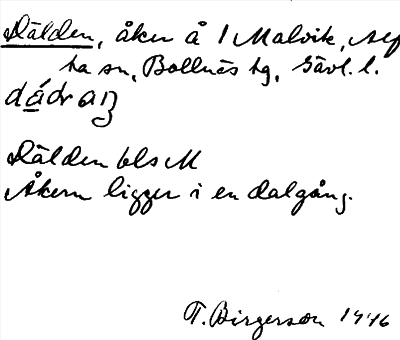 Dälden, åker å 1 Malvik, Alf
ta sn, Bollnäs tg, Gävl. l.
Dälden bls M
Åkern ligger i en dalgång.
T. Birgerson 1946